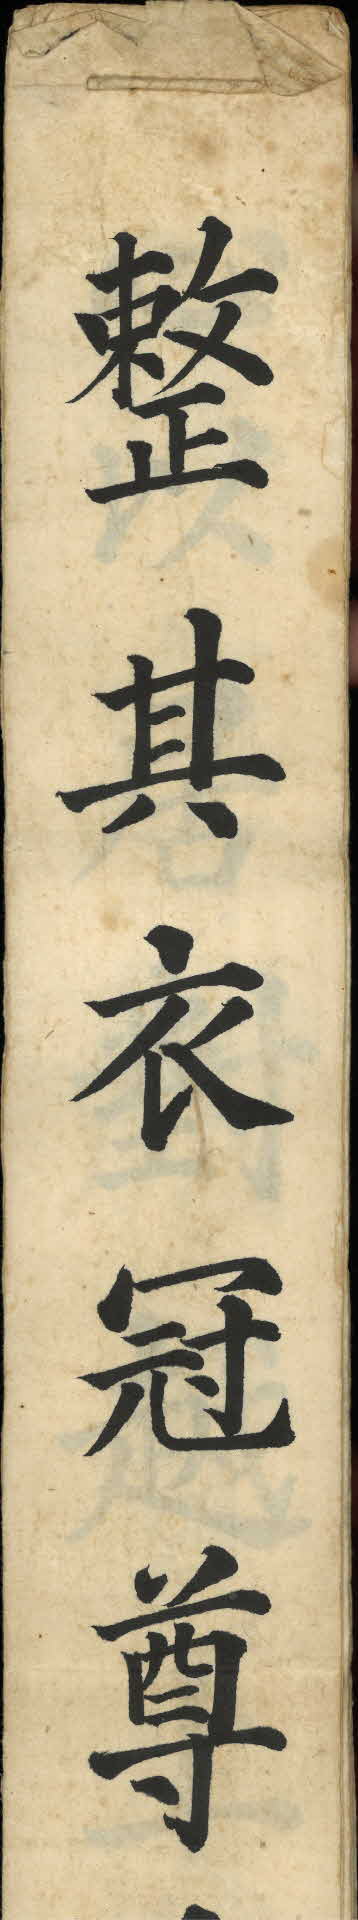 整其衣冠尊